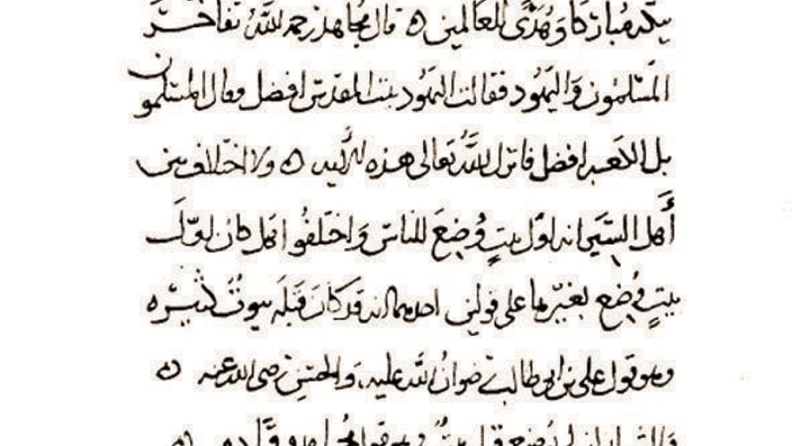 ببكة مباركا وهدى للعالمين ه قال مجاهد رحمه الله تفاخر
المسلمون واليهود فقالت اليهود بيت المقدس افضل وقال المسلمون
بل الكعبه افضل فانزل الله تعالى هذه الايه ه ولا اختلاف بين
أهل السير انه اول بيت وضع للناس واختلفوا هل كان اول
بيت وضع بغيرها على قولين احدهما انه قد كان قبله بيوت كثيره
وهو قول علي بن ابي طالب رضوان الله عليه والحسن رضي الله عنه ه
والثاني انه لم يوضع قبله بيت وهو قول مجاهد وقتاده ه